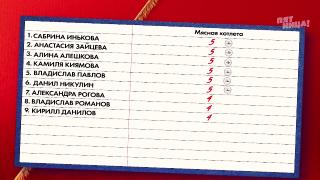 ПЯТНИЦА!
Мясная котлета
1. САБРИНА ИНЬКОВА 5
2. АНАСТАСИЯ ЗАЙЦЕВА 5
3. АЛИНА АЛЕШКОВА 5
4. КАМИЛЯ КИЯМОВА 5
5. ВЛАДИСЛАВ ПАВЛОВ 5
6. ДАНИЛ НИКУЛИН 5
7. АЛЕКСАНДРА РОГОВА 4
8. ВЛАДИСЛАВ РОМАНОВ 4
9. КИРИЛЛ ДАНИЛОВ 4